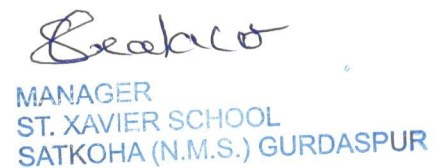 MANAGER
ST. XAVIER SCHOOL
SATKOHA (N.M.S.) GURDASPUR